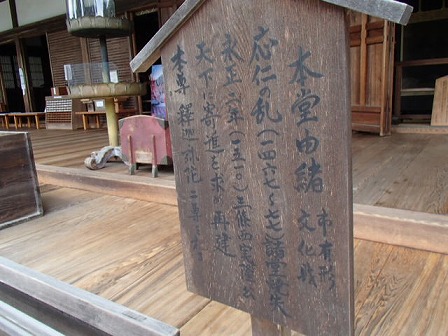 本堂由緒 市有形文化財
応仁の乱(一四六七~七七)諸堂焼失
永正六年(一五一〇)三條西実隆公
天下に寄進を求め再建
本尊 釋迦弥陀二尊